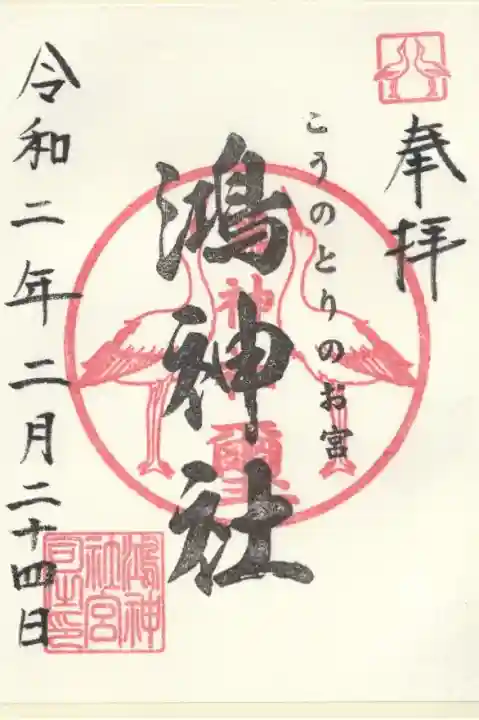 奉拝
こうのとりのお宮
鴻神社
令和二年二月二十四日
鴻神
社宮
司之印